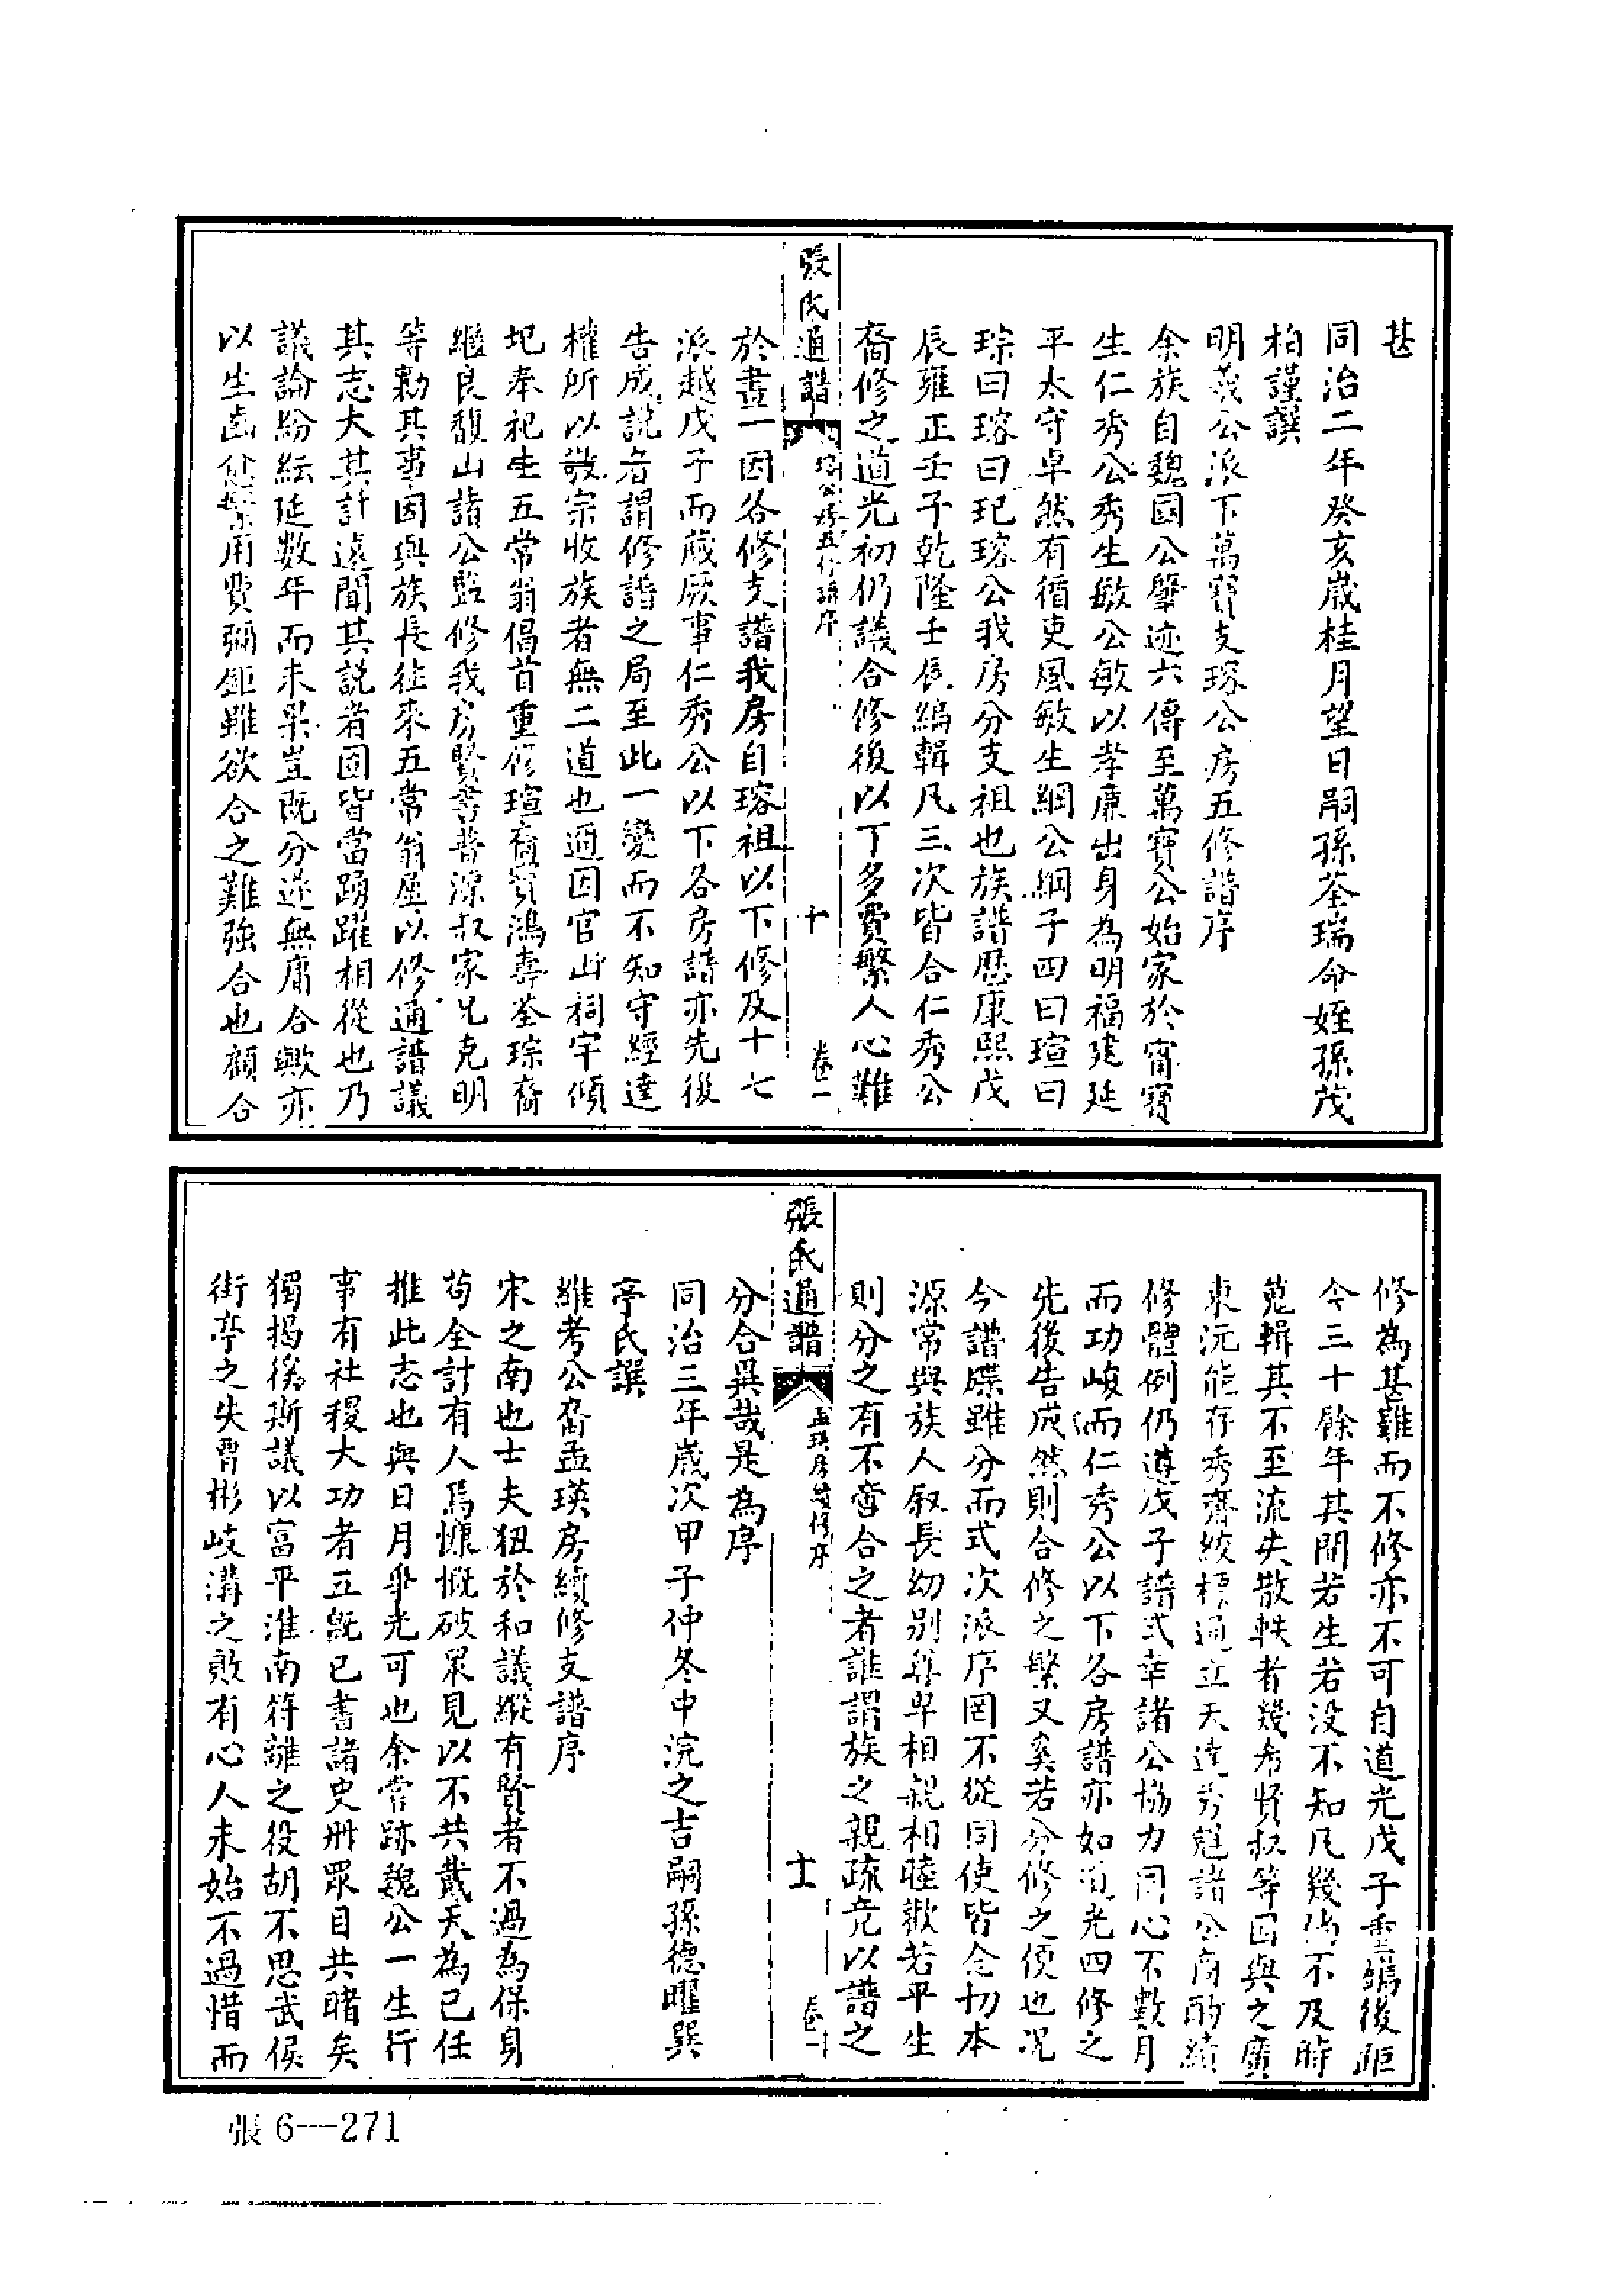 甚
同治二年癸亥歲桂月望日嗣孫荃瑞命姪孫茂
柏謹譔
明義公派下萬寶支瑢公房五修譜序
余族自魏國公肇迹六傳至萬寶公始家於甯寶
生仁秀公秀生敏公敏以孝廉出身為明福建延
平太守卓然有循吏風敏生綱公綱子四曰瑄曰
琮曰瑢曰玘瑢公我房分支祖也族譜歷康熙戊
辰雍正壬子乾隆壬辰編輯凡三次皆合仁秀公
裔修之道光初仍議合修後以丁多費繁人心難
張氏通譜
瑢公房五修譜序
十
卷一
於畫一因各修支譜我房自瑢祖以下修及十七
派越戊子而蕆厥事仁秀公以下各房譜亦先後
告成說者謂修譜之局至此一變而不知守經達
權所以敬宗收族者無二道也邇因官山祠宇傾
圮奉祀生五常翁倡首重修瑄裔賓鴻壽荃琮裔
繼良馥山諸公監修我房賢書普濂叔家兄克明
等勷其事因與族長往來五常翁屋以修通譜議
其志大其計遠聞其說者固皆當踴躍相從也乃
議論紛紜延數年而未果豈既分遂無庸合歟亦
以生齒愈繁用費彌鉅雖欲合之難強合也顧合
修為甚難而不修亦不可自道光戊子重編後距
今三十餘年其間若生若没不知凡幾倘不及時
蒐輯其不至流失散軼者幾希賢叔等因與之廣
東沅能存秀齋紋標通立天達芳冠諸公商酌續
修體例仍遵戊子譜式幸諸公協力同心不數月
而功峻而仁秀公以下各房譜亦如道光四修之
先後告成然則合修之繁又奚若分修之便也况
今譜牒雖分而式次派序罔不從同使皆念切本
源常與族人叙長幼别尊卑相親相睦歡若平生
則分之有不啻合之者誰謂族之親疏竟以譜之
張氏通譜
孟瑛房續修序
十一
卷一
分合異哉是為序
同治三年歲次甲子仲冬中浣之吉嗣孫德曜巽
亭氏譔
維考公裔孟瑛房續修支譜序
宋之南也士夫狃於和議縱有賢者不過為保身
苟全計有人焉慷慨破眾見以不共戴天為己任
推此志也與日月爭光可也余嘗跡魏公一生行
事有社稷大功者五既已書諸史册眾目共睹矣
獨揭後斯議以富平淮南符離之役胡不思武侯
街亭之失曹彬岐溝之敗有心人未始不過惜而
張6---271